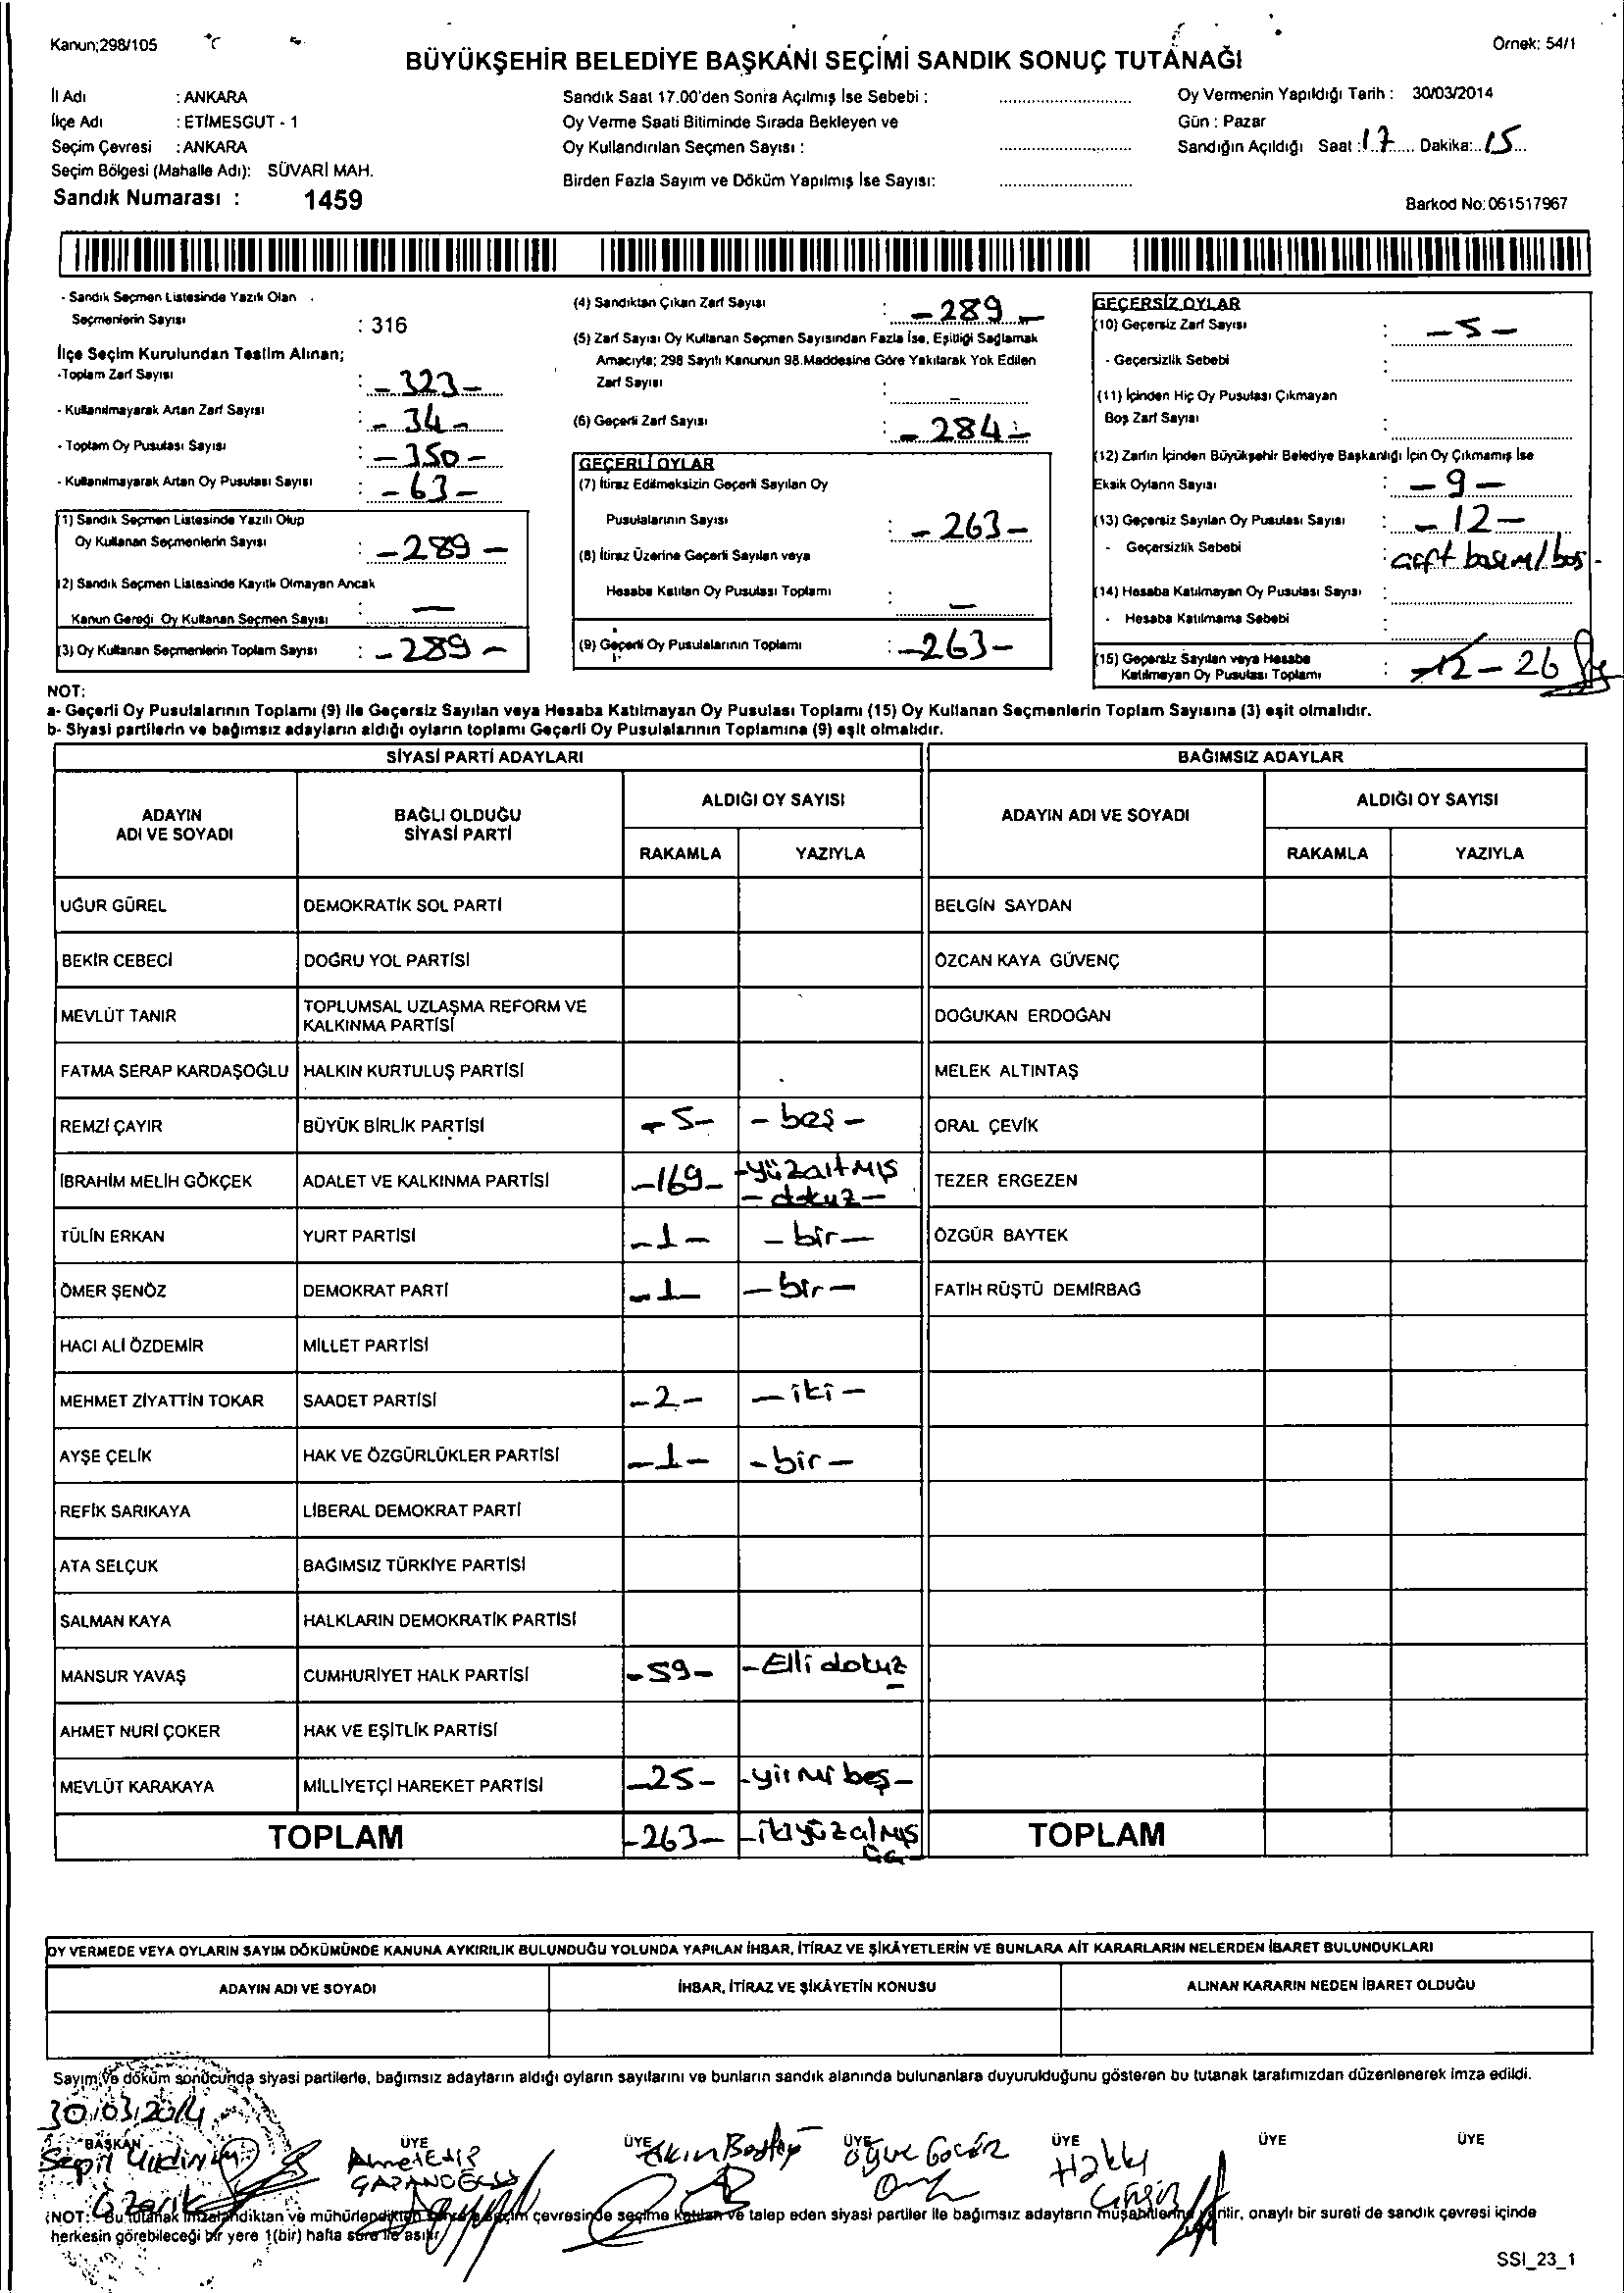 Kanun;298/105
Örnek: 54/1
BÜYÜKŞEHİR BELEDİYE BAŞKANI SEÇİMİ SANDIK SONUÇ TUTANAĞI
İl Adı : ANKARA
İlçe Adı : ETİMESGUT - 1
Seçim Çevresi : ANKARA
Seçim Bölgesi (Mahalle Adı): SÜVARİ MAH.
Sandık Numarası : 1459
Sandık Saat 17.00'den Sonra Açılmış İse Sebebi :
Oy Verme Saati Bitiminde Sırada Bekleyen ve
Oy Kullandırılan Seçmen Sayısı :
Birden Fazla Sayım ve Döküm Yapılmış İse Sayısı:
Oy Vermenin Yapıldığı Tarih : 30/03/2014
Gün : Pazar
Sandığın Açıldığı Saat : 17 Dakika: 15
Barkod No: 061517967
- Sandık Seçmen Listesinde Yazılı Olan
Seçmenlerin Sayısı : 316
İlçe Seçim Kurulundan Teslim Alınan;
-Toplam Zarf Sayısı : -323-
- Kullanılmayarak Artan Zarf Sayısı : -34-
- Toplam Oy Pusulası Sayısı : -350-
- Kullanılmayarak Artan Oy Pusulası Sayısı : -63-
(1) Sandık Seçmen Listesinde Yazılı Olup
Oy Kullanan Seçmenlerin Sayısı : -289-
(2) Sandık Seçmen Listesinde Kayıtlı Olmayan Ancak
Kanun Gereği Oy Kullanan Seçmen Sayısı : —
(3) Oy Kullanan Seçmenlerin Toplam Sayısı : -289-
(4) Sandıktan Çıkan Zarf Sayısı : -289-
(5) Zarf Sayısı Oy Kullanan Seçmen Sayısından Fazla İse, Eşitliği Sağlamak
Amacıyla; 298 Sayılı Kanunun 98.Maddesine Göre Yakılarak Yok Edilen
Zarf Sayısı : -
(6) Geçerli Zarf Sayısı : -284-
GEÇERLİ OYLAR
(7) İtiraz Edilmeksizin Geçerli Sayılan Oy
Pusulalarının Sayısı : -263-
(8) İtiraz Üzerine Geçerli Sayılan veya
Hesaba Katılan Oy Pusulası Toplamı : —
(9) Geçerli Oy Pusulalarının Toplamı : -263-
GEÇERSİZ OYLAR
(10) Geçersiz Zarf Sayısı : -5-
- Geçersizlik Sebebi :
(11) İçinden Hiç Oy Pusulası Çıkmayan
Boş Zarf Sayısı :
(12) Zarfın İçinden Büyükşehir Belediye Başkanlığı İçin Oy Çıkmamış İse
Eksik Oyların Sayısı : -9-
(13) Geçersiz Sayılan Oy Pusulası Sayısı : -12-
- Geçersizlik Sebebi : çift basım/boş-
(14) Hesaba Katılmayan Oy Pusulası Sayısı :
- Hesaba Katılmama Sebebi :
(15) Geçersiz Sayılan veya Hesaba
Katılmayan Oy Pusulası Toplamı : -12- 26
NOT:
a- Geçerli Oy Pusulalarının Toplamı (9) ile Geçersiz Sayılan veya Hesaba Katılmayan Oy Pusulası Toplamı (15) Oy Kullanan Seçmenlerin Toplam Sayısına (3) eşit olmalıdır.
b- Siyasi partilerin ve bağımsız adayların aldığı oyların toplamı Geçerli Oy Pusulalarının Toplamına (9) eşit olmalıdır.
SİYASİ PARTİ ADAYLARI
BAĞIMSIZ ADAYLAR
ADAYIN ADI VE SOYADI
BAĞLI OLDUĞU SİYASİ PARTİ
ALDIĞI OY SAYISI
RAKAMLA YAZIYLA
ADAYIN ADI VE SOYADI
ALDIĞI OY SAYISI
RAKAMLA YAZIYLA
UĞUR GÜREL DEMOKRATİK SOL PARTİ BELGİN SAYDAN
BEKİR CEBECİ DOĞRU YOL PARTİSİ ÖZCAN KAYA GÜVENÇ
MEVLÜT TANIR TOPLUMSAL UZLAŞMA REFORM VE KALKINMA PARTİSİ DOĞUKAN ERDOĞAN
FATMA SERAP KARDAŞOĞLU HALKIN KURTULUŞ PARTİSİ MELEK ALTINTAŞ
REMZİ ÇAYIR BÜYÜK BİRLİK PARTİSİ -5- -beş- ORAL ÇEVİK
İBRAHİM MELİH GÖKÇEK ADALET VE KALKINMA PARTİSİ -169- -yüzaltmış -dokuz- TEZER ERGEZEN
TÜLİN ERKAN YURT PARTİSİ -1- -bir- ÖZGÜR BAYTEK
ÖMER ŞENÖZ DEMOKRAT PARTİ -1- -bir- FATİH RÜŞTÜ DEMİRBAĞ
HACI ALİ ÖZDEMİR MİLLET PARTİSİ
MEHMET ZİYATTİN TOKAR SAADET PARTİSİ -2- -iki-
AYŞE ÇELİK HAK VE ÖZGÜRLÜKLER PARTİSİ -1- -bir-
REFİK SARIKAYA LİBERAL DEMOKRAT PARTİ
ATA SELÇUK BAĞIMSIZ TÜRKİYE PARTİSİ
SALMAN KAYA HALKLARIN DEMOKRATİK PARTİSİ
MANSUR YAVAŞ CUMHURİYET HALK PARTİSİ -59- -Elli dokuz-
AHMET NURİ ÇOKER HAK VE EŞİTLİK PARTİSİ
MEVLÜT KARAKAYA MİLLİYETÇİ HAREKET PARTİSİ -25- -yirmi beş-
TOPLAM -263- -ikiyüzalmış üç- TOPLAM
OY VERMEDE VEYA OYLARIN SAYIM DÖKÜMÜNDE KANUNA AYKIRILIK BULUNDUĞU YOLUNDA YAPILAN İHBAR, İTİRAZ VE ŞİKÂYETLERİN VE BUNLARA AİT KARARLARIN NELERDEN İBARET BULUNDUKLARI
ADAYIN ADI VE SOYADI İHBAR, İTİRAZ VE ŞİKÂYETİN KONUSU ALINAN KARARIN NEDEN İBARET OLDUĞU
Sayım ve döküm sonucunda siyasi partilerle, bağımsız adayların aldığı oyların sayılarını ve bunların sandık alanında bulunanlara duyurulduğunu gösteren bu tutanak tarafımızdan düzenlenerek imza edildi.
30/03/2014
BAŞKAN ÜYE ÜYE ÜYE ÜYE ÜYE ÜYE
Hakkı
(NOT: Bu tutanak imzalandıktan ve mühürlendikten sonra seçim çevresinde seçime katılan ve talep eden siyasi partiler ile bağımsız adayların müşahitlerine verilir, onaylı bir sureti de sandık çevresi içinde
herkesin görebileceği bir yere 1(bir) hafta süre ile asılır)
SSI_23_1